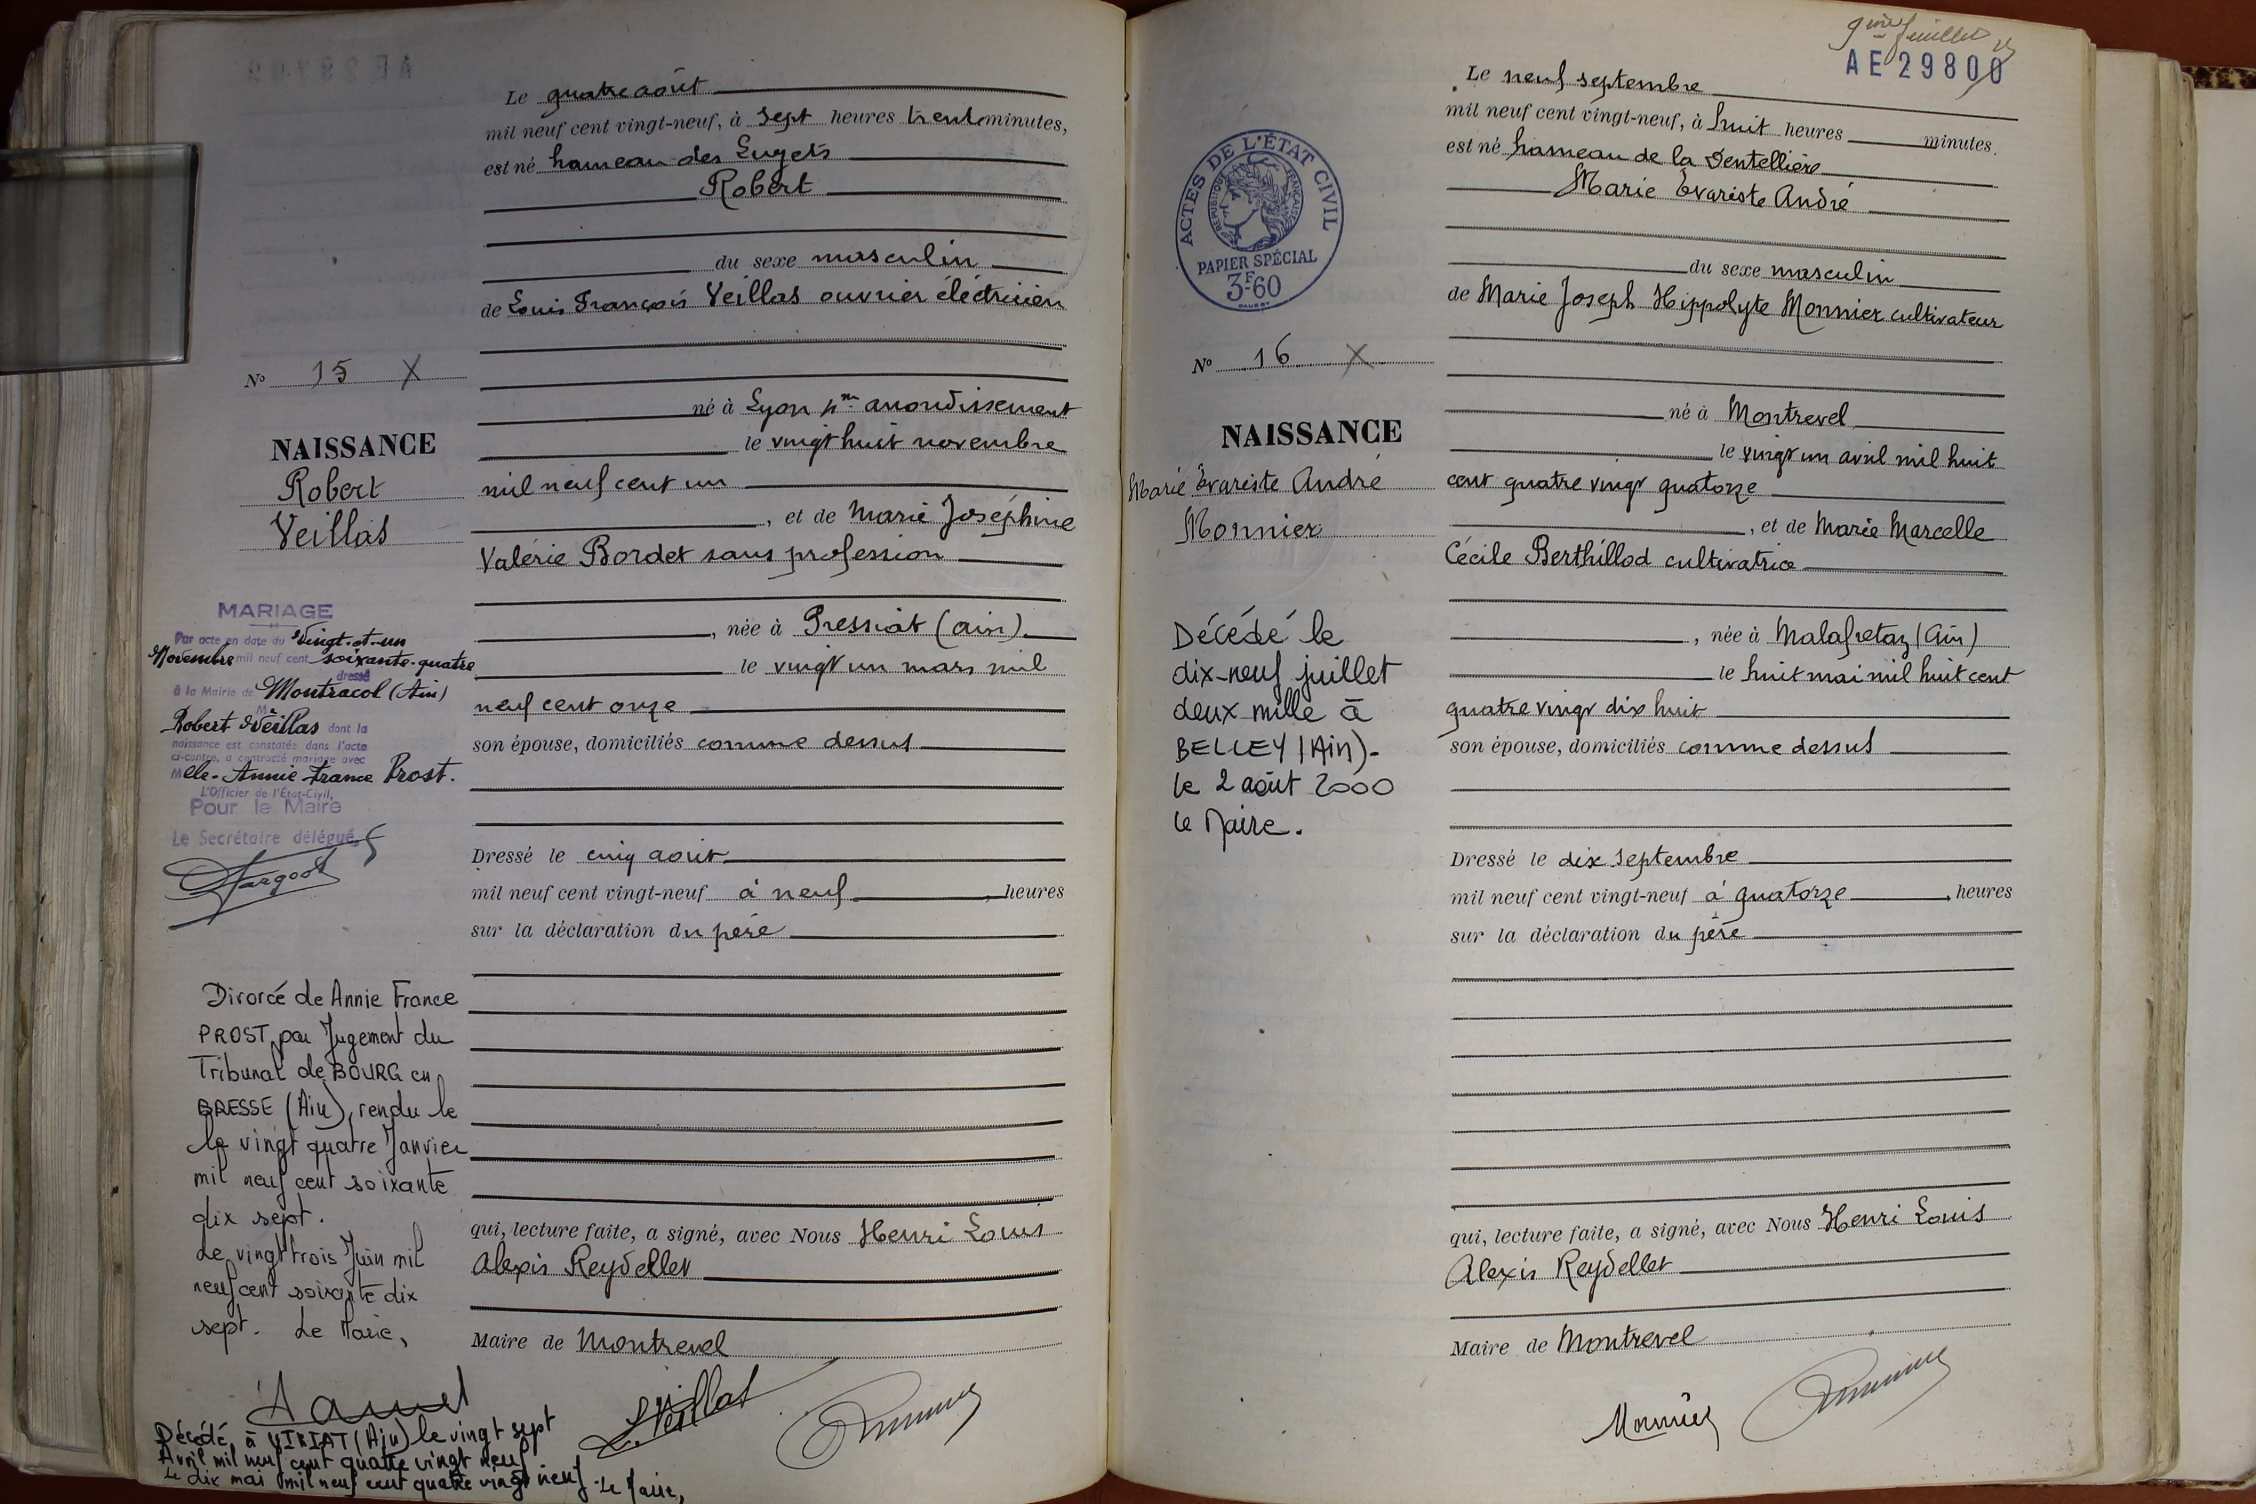 Le quatre août
mil neuf cent vingt-neuf, à sept heures trente minutes,
est né hameau des Luyets
Robert
du sexe masculin
de Louis François Veillas ouvrier électricien
N° 15 X
né à Lyon 4me arrondissement
le vingt huit novembre
mil neuf cent un
, et de Marie Joséphine
Valérie Bordet sans profession
, née à Pressiat (ain)
le vingt un mars mil
neuf cent onze
son épouse, domiciliés comme dessus
Dressé le cinq août
mil neuf cent vingt-neuf à neuf heures
sur la déclaration du père
qui, lecture faite, a signé, avec Nous Henri Louis
Alexis Reydellet
Maire de Montrevel
L. Veillas
NAISSANCE
Robert
Veillas
MARIAGE
Par acte en date du Vingt-et-un
Novembre mil neuf cent soixante-quatre
dressé
à la Mairie de Montracol (Ain)
M
Robert Veillas dont la
naissance est constatée dans l'acte
ci-contre, a contracté mariage avec
Melle Annie France Prost.
L'Officier de l'État-Civil,
Pour le Maire
Le Secrétaire délégué,
Divorcé de Annie France
PROST par Jugement du
Tribunal de BOURG en
BRESSE (Ain), rendu le
le vingt quatre Janvier
mil neuf cent soixante
dix sept.
Le vingt trois Juin mil
neuf cent soixante dix
sept. Le Maire,
Décédé à VIRIAT (Ain) le vingt sept
Avril mil neuf cent quatre vingt neuf
Le dix mai mil neuf cent quatre vingt neuf. Le Maire,
9ème feuillet
AE29800
Le neuf septembre
mil neuf cent vingt-neuf, à huit heures minutes.
est né hameau de la Dentellière
Marie Évariste André
du sexe masculin
de Marie Joseph Hippolyte Monnier cultivateur
ACTES DE L'ÉTAT CIVIL
RÉPUBLIQUE FRANÇAISE
PAPIER SPÉCIAL
3F60
N° 16 X
né à Montrevel
le vingt un avril mil huit
cent quatre vingt quatorze
, et de Marie Marcelle
Cécile Berthillod cultivatrice
, née à Malafretaz (Ain)
le huit mai mil huit cent
quatre vingt dix huit
son épouse, domiciliés comme dessus
Dressé le dix septembre
mil neuf cent vingt-neuf à quatorze, heures
sur la déclaration du père
qui, lecture faite, a signé, avec Nous Henri Louis
Alexis Reydellet
Maire de Montrevel
Monnier
NAISSANCE
Marie Évariste André
Monnier
Décédé le
dix-neuf juillet
deux mille à
BELLEY (Ain)-
le 2 août 2000
Le Maire.